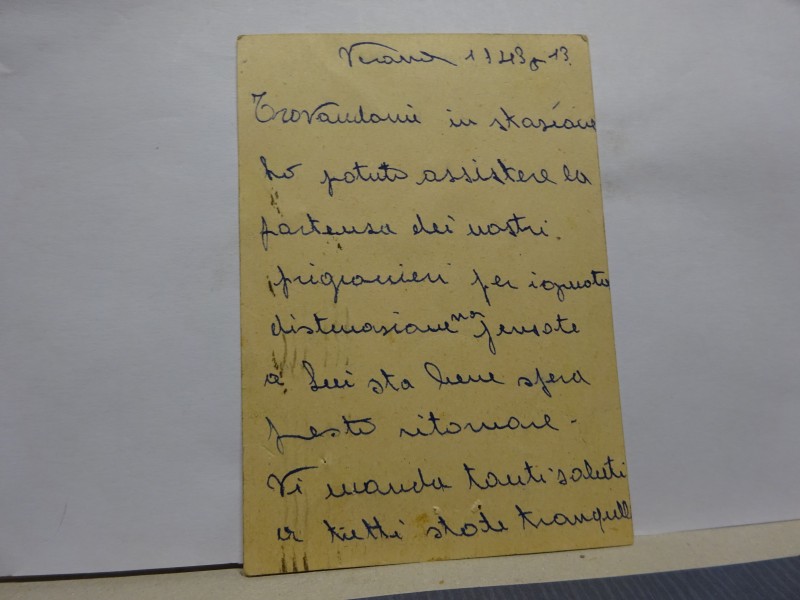 Verona 1943 9 13
Trovandomi in stazione
ho potuto assistere la
partensa dei nostri
prigionieri per ignoto
distinasione non pensate
a Lui sta bene spera
presto ritornare -
Vi manda tanti saluti
a tutti state tranquilli